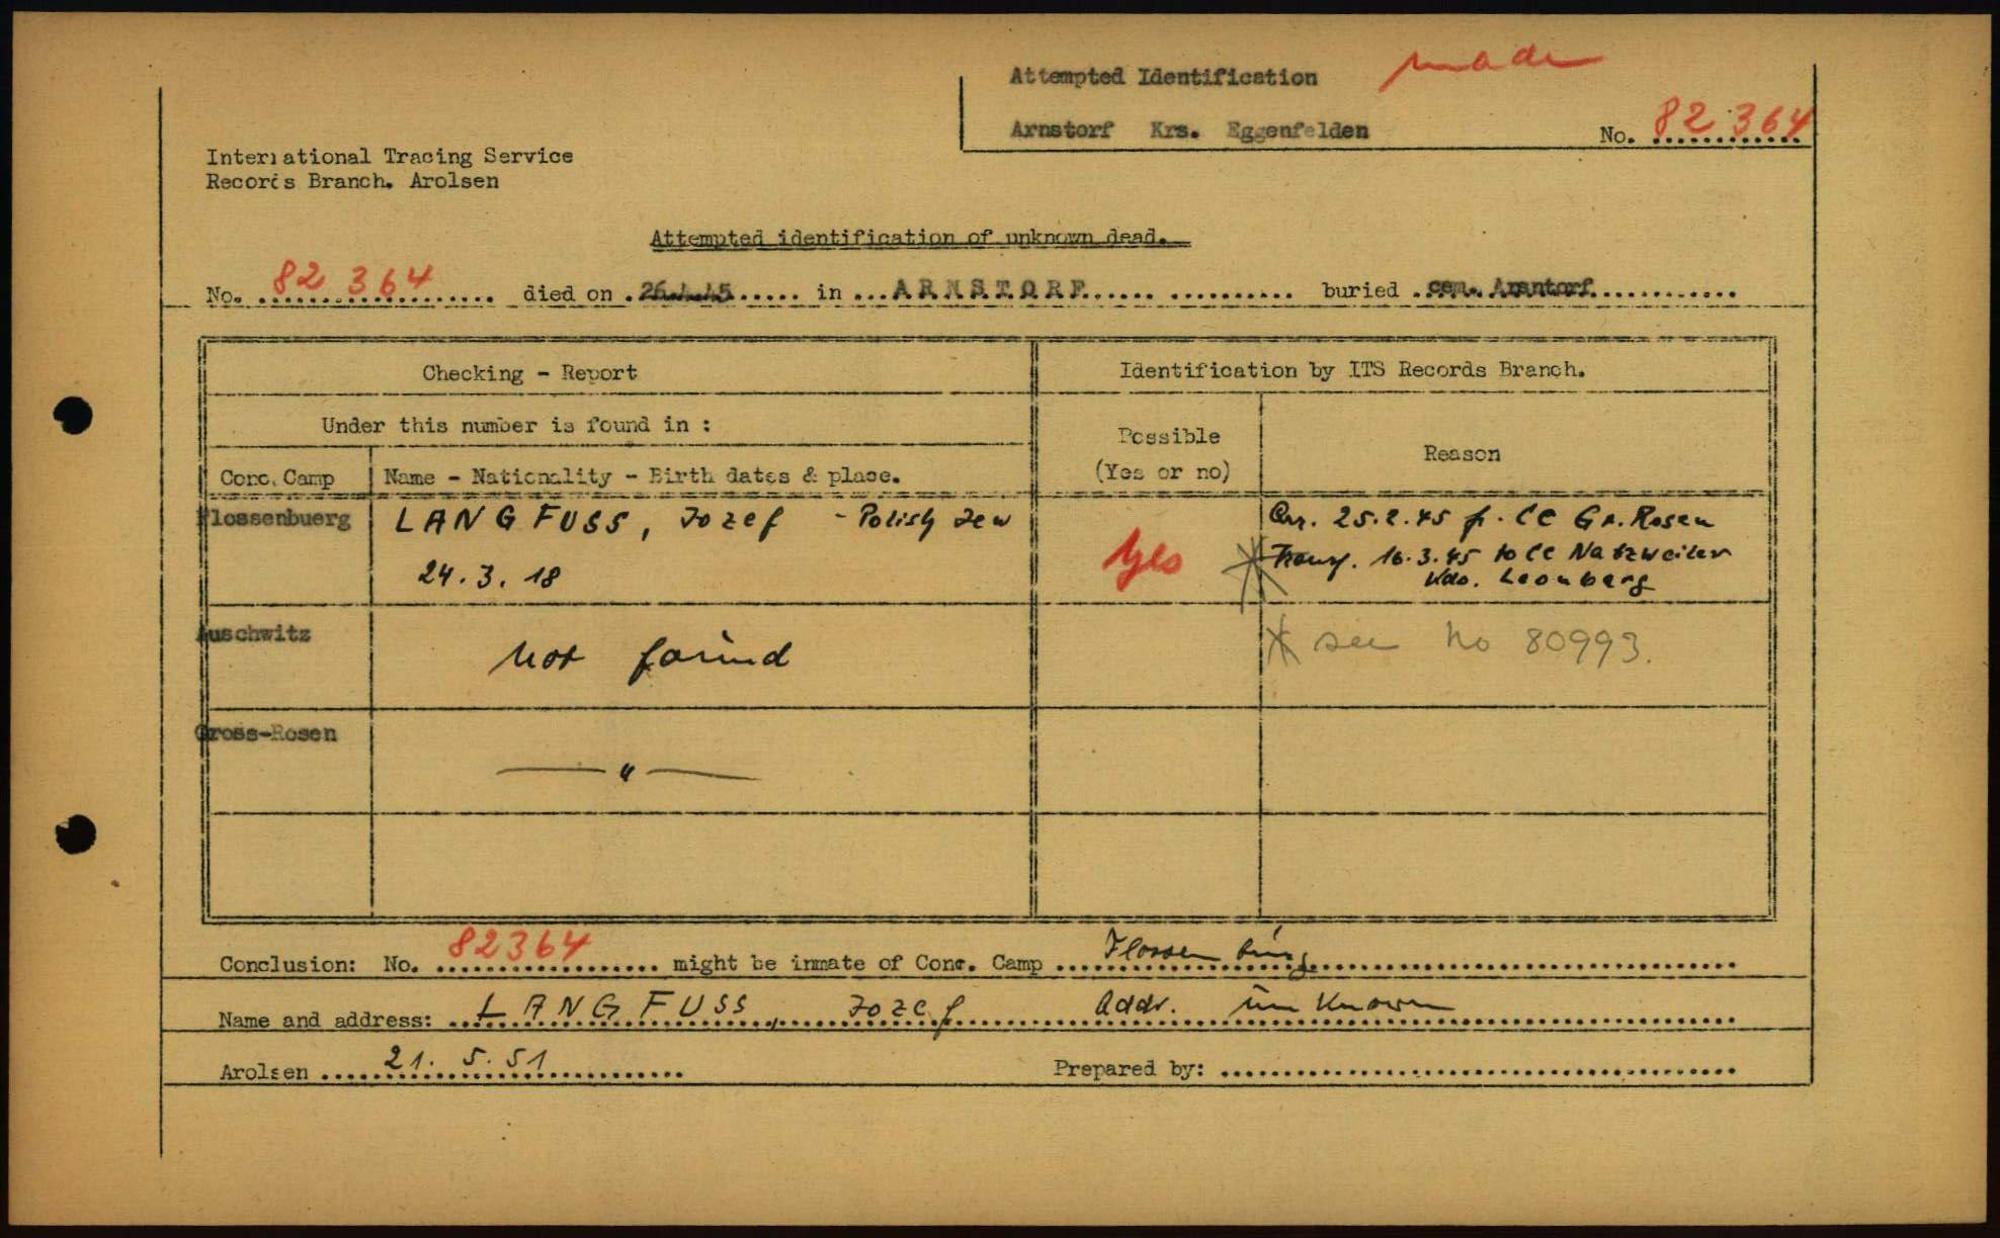 Attempted Identification made
Arnstorf Krs. Eggenfelden No. 82 364
International Tracing Service
Records Branch. Arolsen
Attempted identification of unknown dead.
No. 82 364 died on 26.4.45 in ARNSTORF buried cem. Arnstorf
Checking - Report
Identification by ITS Records Branch.
Under this number is found in :
Possible
(Yes or no)
Reason
Conc. Camp
Name - Nationality - Birth dates & place.
Flossenbuerg
LANGFUSS, Jozef - Polish Jew
24.3.18
Yes
Arr. 25.2.45 fr. CC Gr. Rosen
Transf. 16.3.45 to CC Natzweiler
Kdo. Leonberg
Auschwitz
not found
* see No 80993.
Gross-Rosen
— " —
Conclusion: No. 82364 might be inmate of Conc. Camp Flossenbürg
Name and address: LANGFUSS, Jozef Addr. unknown
Arolsen 21.5.51 Prepared by: